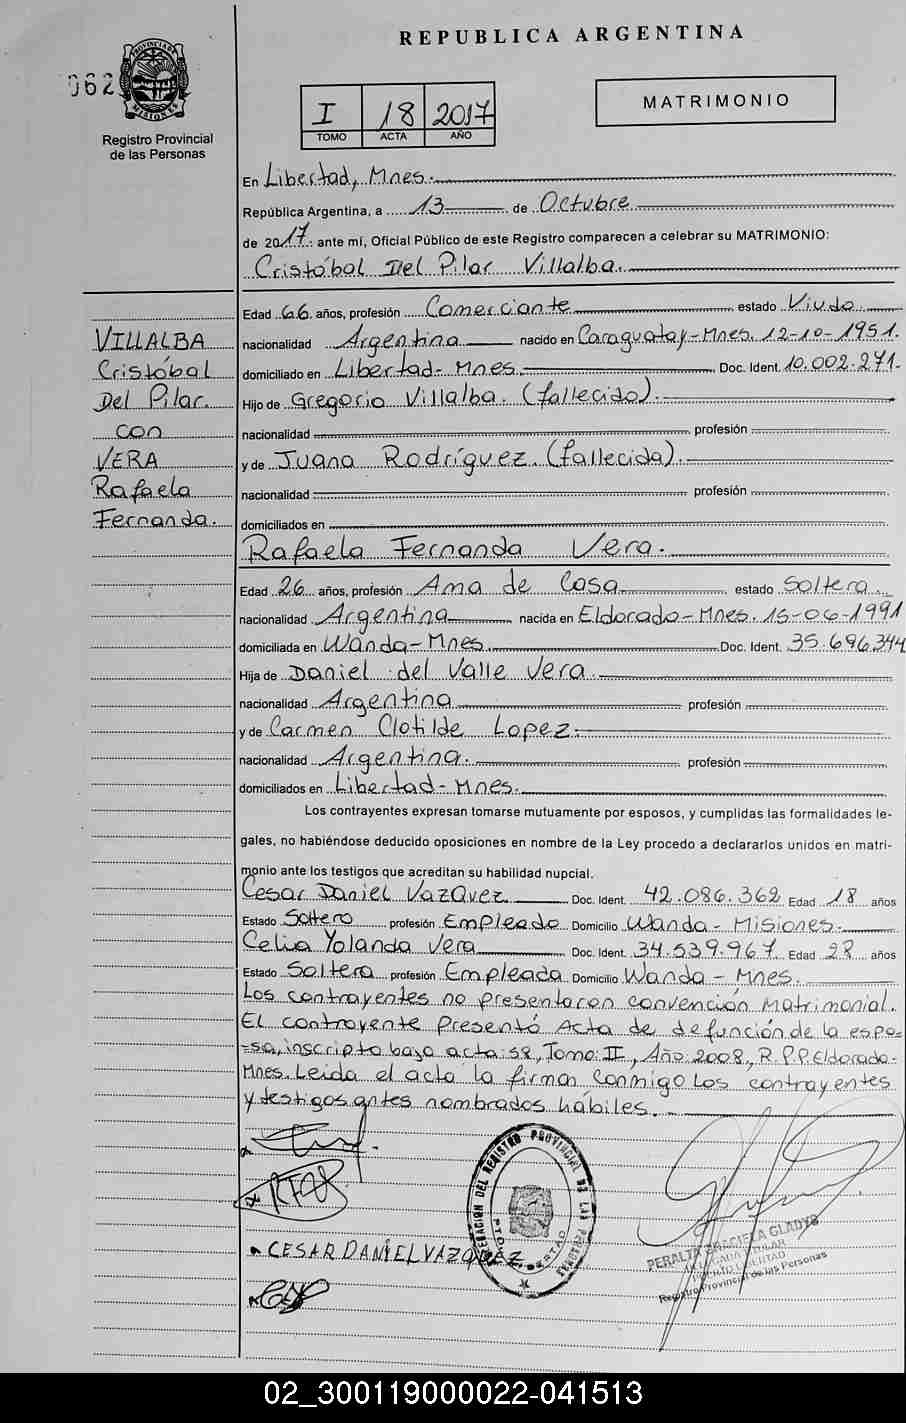 REPUBLICA ARGENTINA
062
PROVINCIA DE MISIONES
Registro Provincial
de las Personas
I 18 2017
TOMO ACTA AÑO
MATRIMONIO
En Libertad, Mnes.
República Argentina, a 13 de Octubre
de 2017 ante mí, Oficial Público de este Registro comparecen a celebrar su MATRIMONIO:
Cristóbal Del Pilar Villalba.
VILLALBA
Cristóbal
Del Pilar.
con
VERA
Rafaela
Fernanda.
Edad 66 años, profesión Comerciante estado Viudo
nacionalidad Argentina nacido en Caraguatay-Mnes. 12-10-1951.
domiciliado en Libertad-Mnes. Doc. Ident. 10.002.271-
Hijo de Gregorio Villalba. (fallecido).
nacionalidad profesión
y de Juana Rodríguez (fallecida).
nacionalidad profesión
domiciliados en
Rafaela Fernanda Vera.
Edad 26 años, profesión Ama de Casa estado Soltera.
nacionalidad Argentina nacida en Eldorado-Mnes. 15-06-1991
domiciliada en Wanda-Mnes. Doc. Ident. 35.696.344
Hija de Daniel del Valle Vera.
nacionalidad Argentina profesión
y de Carmen Clotilde Lopez.
nacionalidad Argentina. profesión
domiciliados en Libertad-Mnes.
Los contrayentes expresan tomarse mutuamente por esposos, y cumplidas las formalidades le-
gales, no habiéndose deducido oposiciones en nombre de la Ley procedo a declararlos unidos en matri-
monio ante los testigos que acreditan su habilidad nupcial.
Cesar Daniel VazQuez Doc. Ident. 42.086.362 Edad 18 años
Estado Soltero profesión Empleado Domicilio Wanda-Misiones.
Celia Yolanda Vera Doc. Ident. 34.539.967. Edad 28 años
Estado Soltera profesión Empleada Domicilio Wanda-Mnes.
Los contrayentes no presentaron convención matrimonial.
El contrayente Presentó Acta de defunción de la espo=
=sa, inscripto bajo acta: 58, Tomo: II, Año 2008, R.P.P. Eldorado-
Mnes. Leida el acta la firman conmigo los contrayentes
y testigos antes nombrados hábiles.
CESAR DANIEL VAZQUEZ
DELEGACION DEL REGISTRO PROVINCIAL DE LAS PERSONAS
PTO. LIBERTAD
PERALTA GRACIELA GLADYS
DELEGADA TITULAR
PUERTO LIBERTAD
Registro Provincial de las Personas
02_300119000022-041513